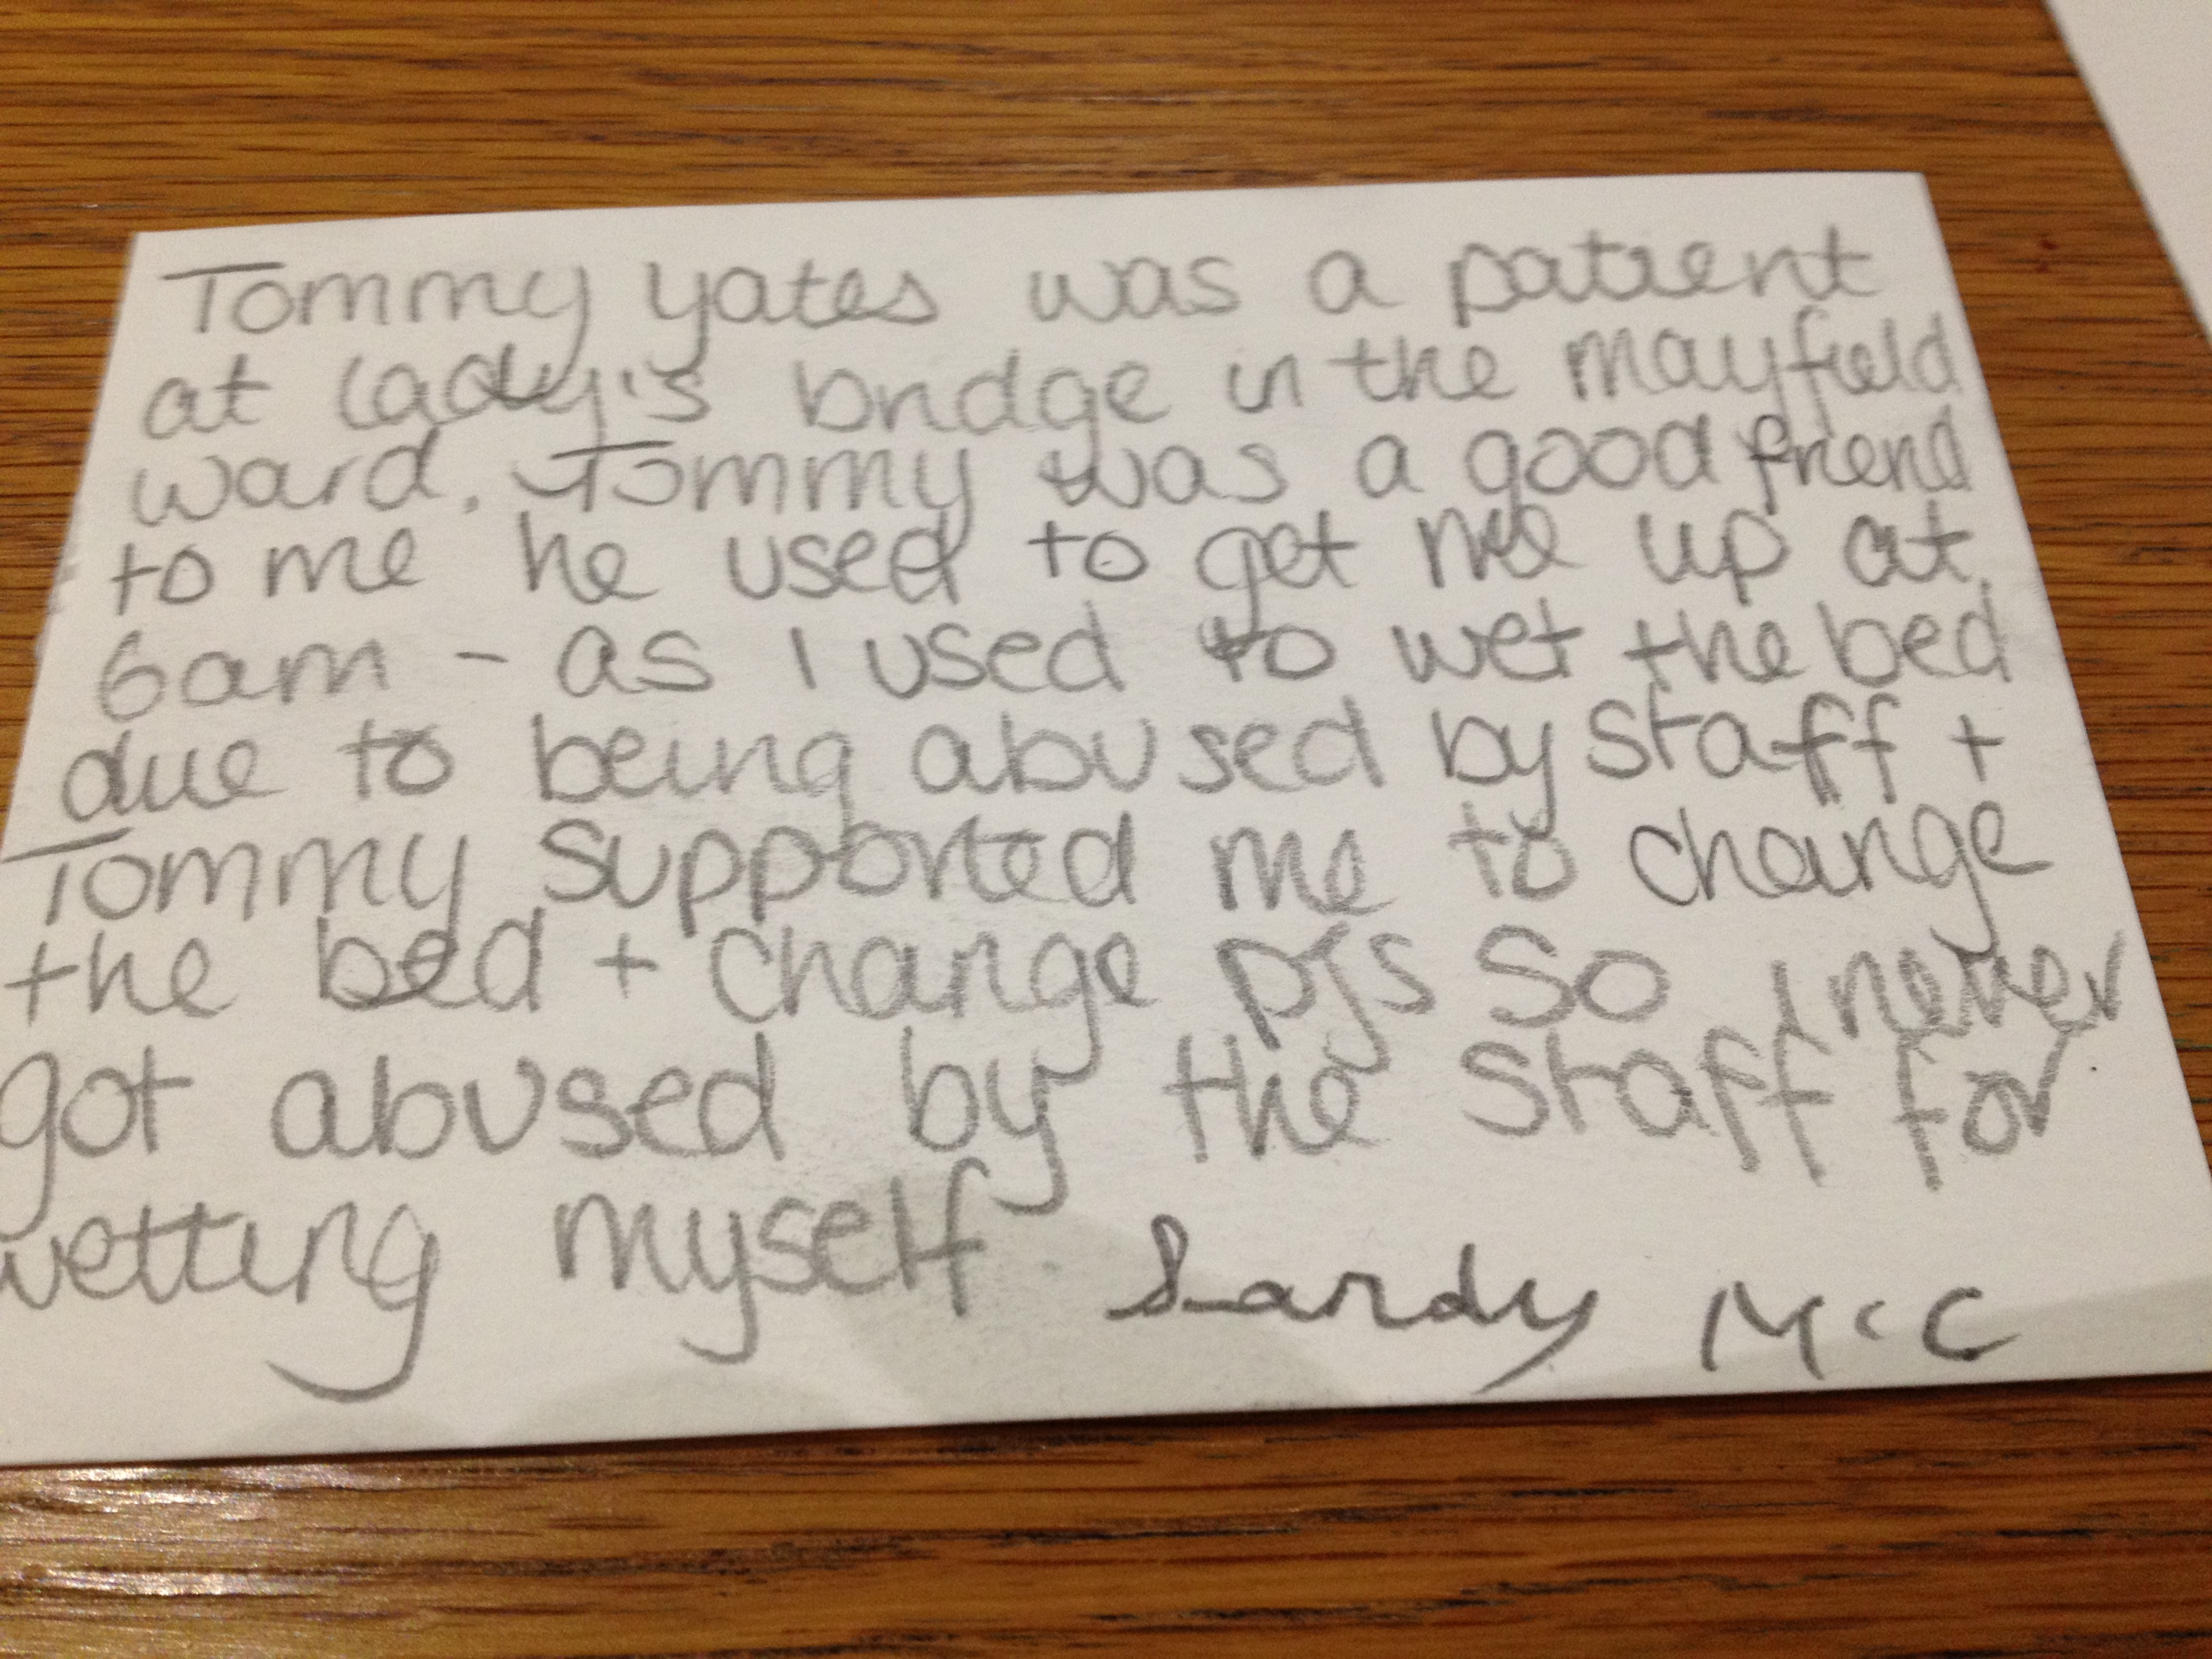 Tommy yates was a patient
at lady's bridge in the mayfield
ward. Tommy was a good friend
to me he used to get me up at
6am - as I used to wet the bed
due to being abused by staff +
Tommy supported me to change
the bed + change pJs so I never
got abused by the staff for
wetting myself
Sandy McC